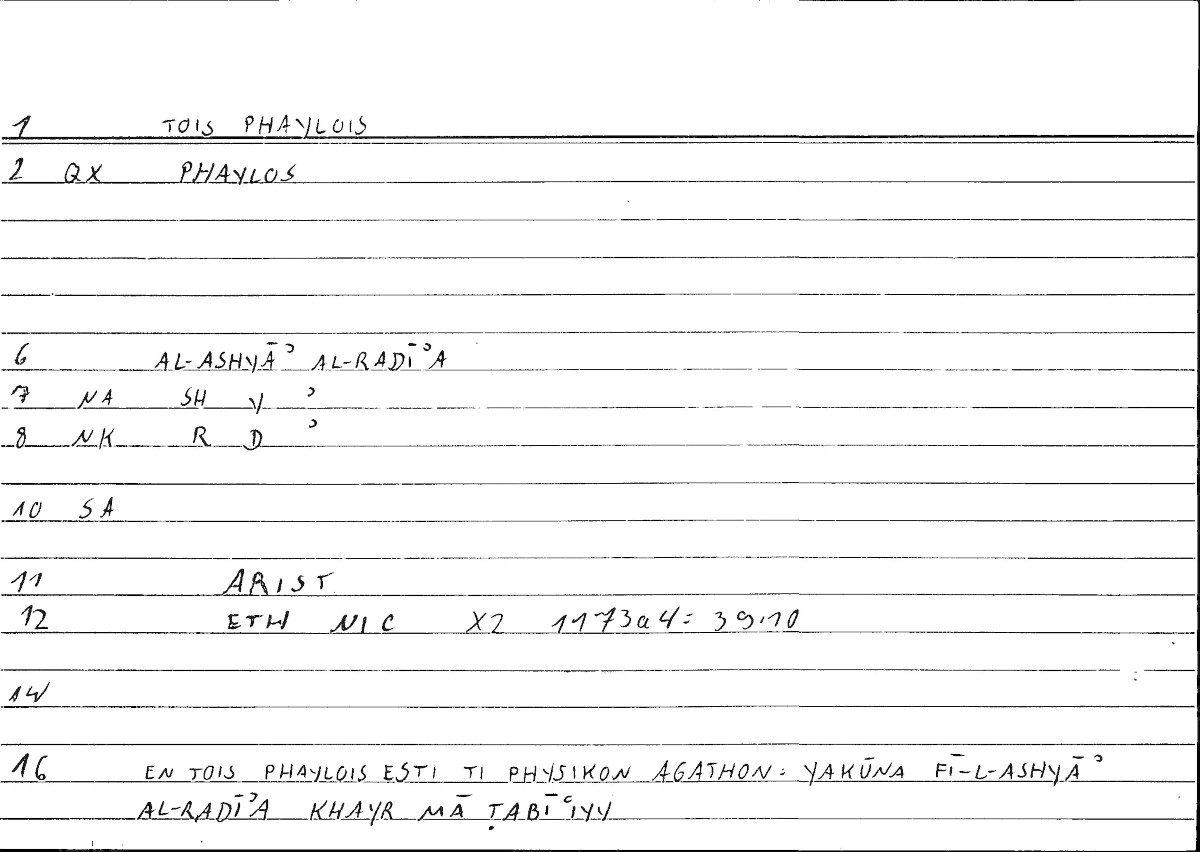 1 TOIS PHAYLOIS
2 QX PHAYLOS
6 AL-ASHYĀʾ AL-RADĪʾA
7 NA SH Y ʾ
8 NK R D ʾ
10 SA
11 ARIST
12 ETH NIC X2 1173a4: 39.10
14
16 EN TOIS PHAYLOIS ESTI TI PHYSIKON AGATHON: YAKŪNA FĪ-L-ASHYĀʾ
AL-RADĪʾA KHAYR MĀ ṬABĪʿIYY